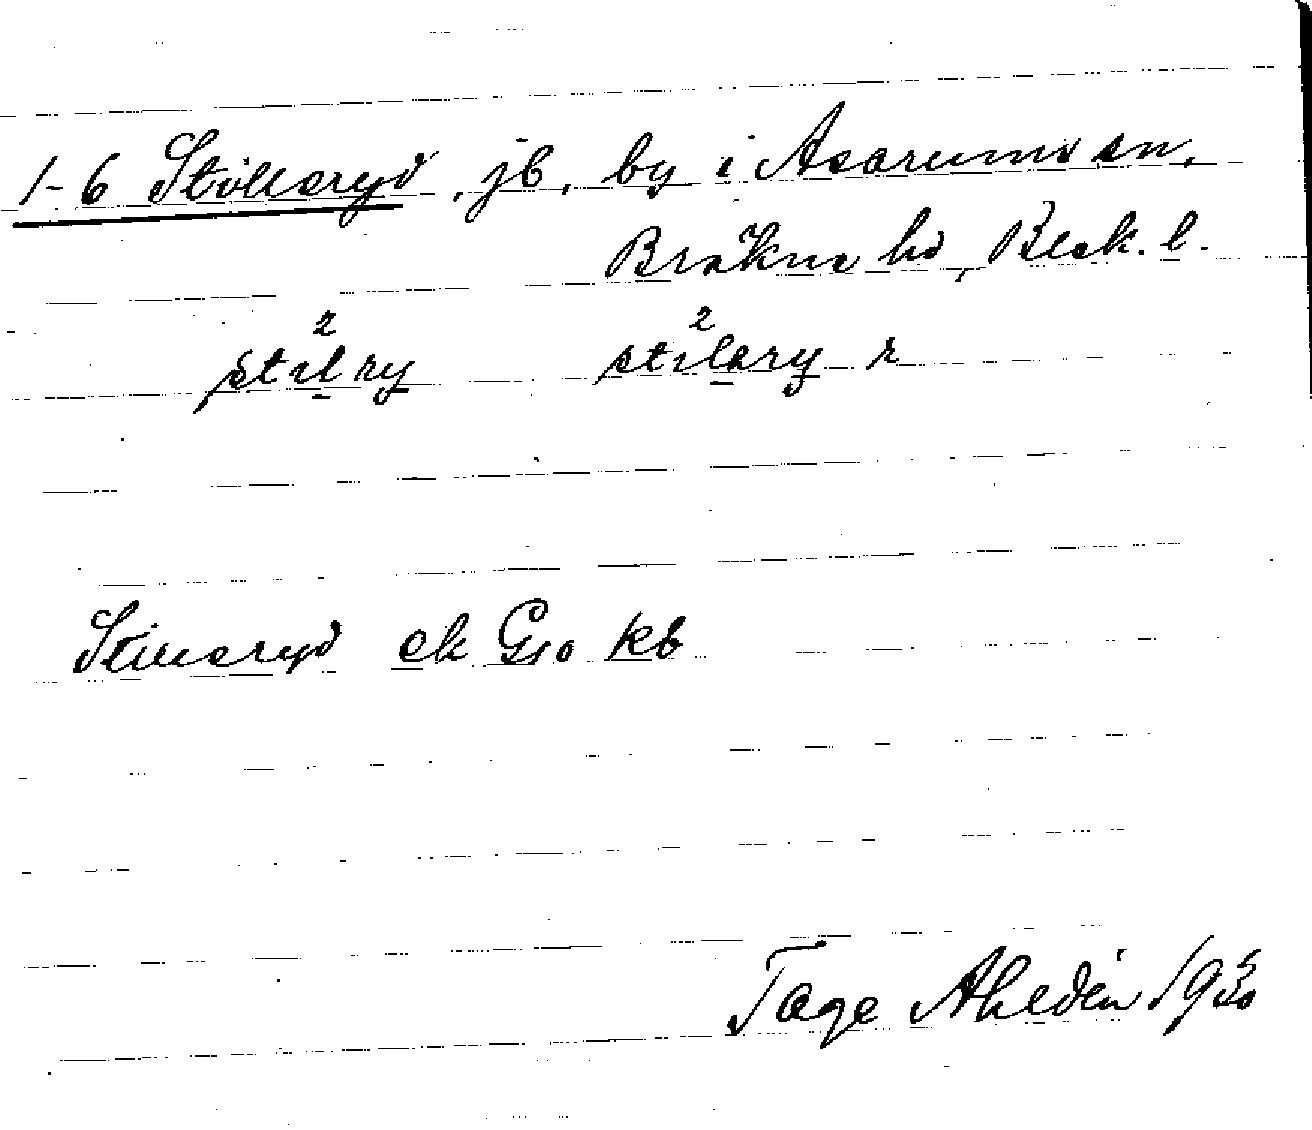 1-6 Stilleryd, jb, by i Asarums sn,
Bräkne hd, Blek. l.
stilry stilery r
Stilleryd ek G10 kb
Tage Ahldén 1930